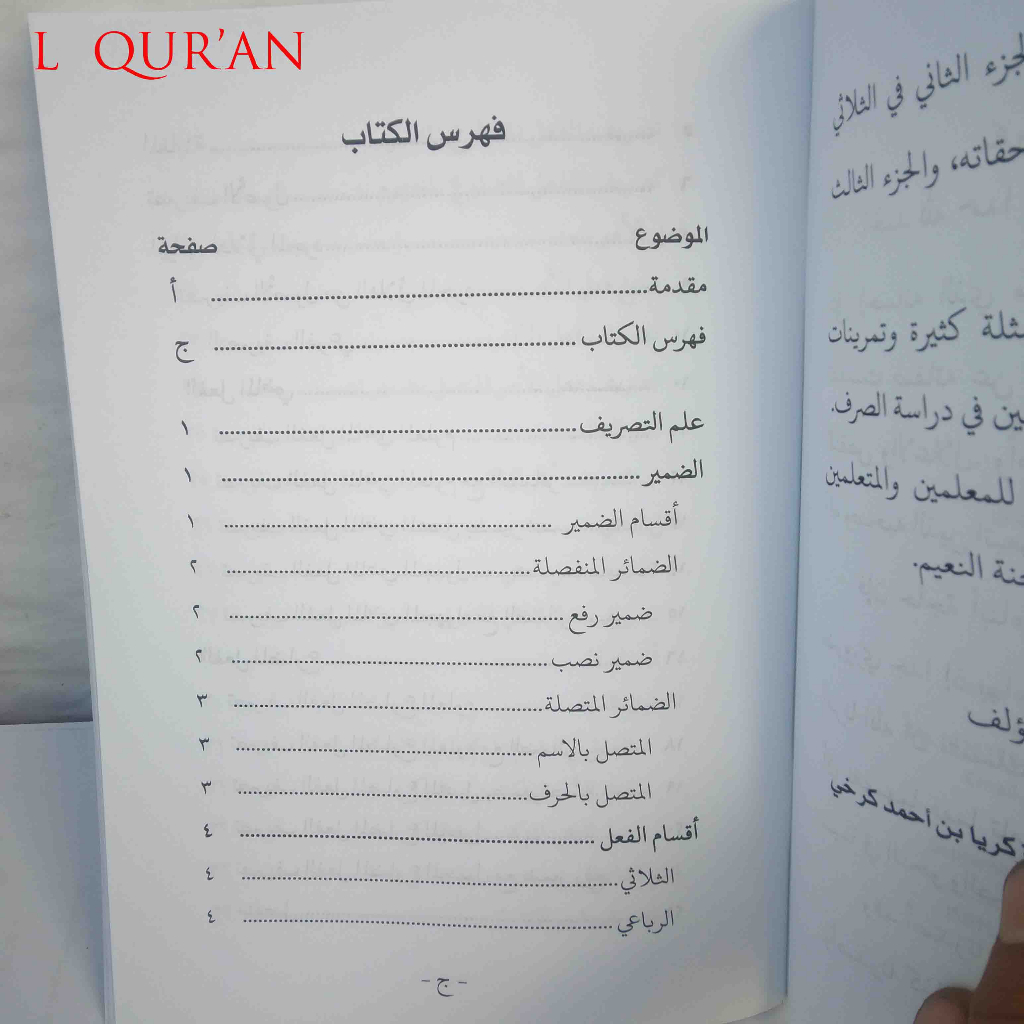 L QUR'AN
فهرس الكتاب
الموضوع صفحة
مقدمة أ
فهرس الكتاب ج
علم التصريف ١
الضمير ١
أقسام الضمير ١
الضمائر المنفصلة ٢
ضمير رفع ٢
ضمير نصب ٢
الضمائر المتصلة ٣
المتصل بالاسم ٣
المتصل بالحرف ٣
أقسام الفعل ٤
الثلاثي ٤
الرباعي ٤
- ج -
الجزء الثاني في الثلاثي
والجزء الثالث
كثيرة وتمرينات
في دراسة الصرف.
للمعلمين والمتعلمين
النعيم.
بن أحمد كرخي